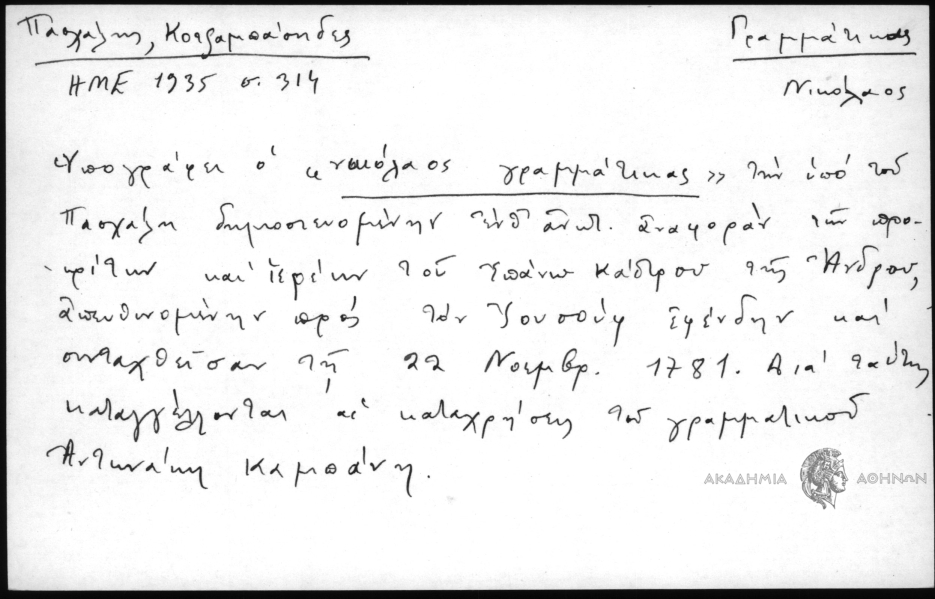 Πασχάλης, Κοτζαμπάσηδες
Γραμμάτικας
ΗΜΕ 1935 σ. 314
Νικόλαος
Ὑπογράφει ὁ «νικόλαος γραμμάτικας» τὴν ὑπό του
Πασχάλη δημοσιευομένην ἐνθ' ἀνωτ. ἀναφορὰν τῶν προ-
κρίτων καὶ ἱερέων τοῦ Ἐπάνω Κάστρου τῆς Ἄνδρου,
ἀπευθυνομένην πρὸς τὸν Ἰουσοὺφ Ἐφένδην καὶ
συνταχθεῖσαν τῇ 22 Νοεμβρ. 1781. Διὰ ταύτης
καταγγέλλονται αἱ καταχρήσεις τοῦ γραμματικοῦ
Ἀντωνάκη Καμπάνη.
ΑΚΑΔΗΜΙΑ ΑΘΗΝΩΝ